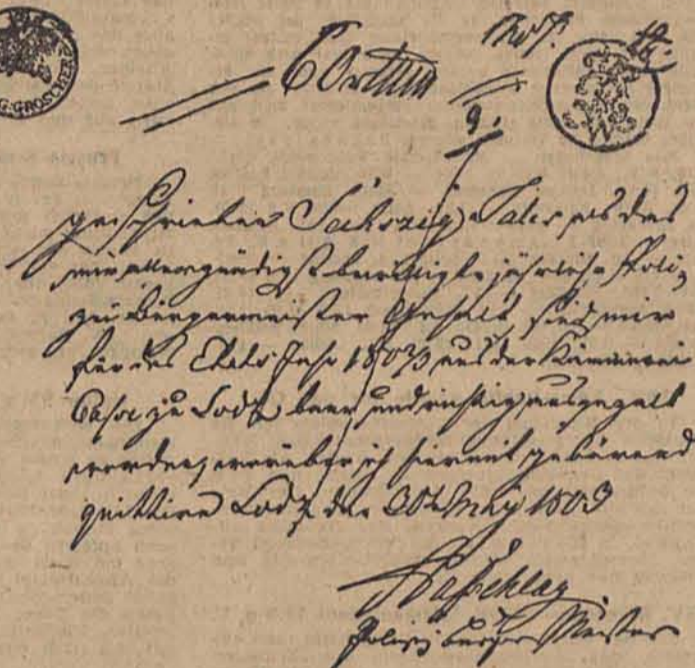 G. GROSCHEN
9.
geschrieben Sechszig Taler als das
mir allergnädigst bewilligte jährliche Poli-
zei Bürgermeister Gehalt, sind mir
für das Etats Jahr 1802/3 aus der Kämmerei
Casse zu Lodz baar und richtig ausgezalt
worden, worüber ich hiermit gebürend
quittire Lodz den 30t May 1803
Polizei burger Meister